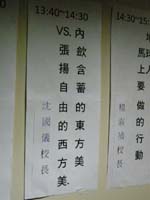 13:40~14:30
內歛含蓄的東方美
VS.張揚自由的西方美.
沈國儀校長
14:30~15:
地球人
馬上要做的行動
校長